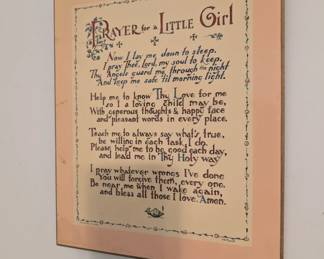 Prayer for a Little Girl
Now I lay me down to sleep.
I pray Thee, Lord, my soul to keep.
Thy Angels guard me through the night
And keep me safe 'til morning light.
Help me to know Thy Love for me
so I a loving child may be,
With generous thoughts & happy face
and pleasant words in every place.
Teach me to always say what's true,
be willing in each task I do.
Please help me to be good each day,
and lead me in Thy Holy way
I pray whatever wrongs I've done
You will forgive them, every one.
Be near me when I wake again,
and bless all those I love. Amen.